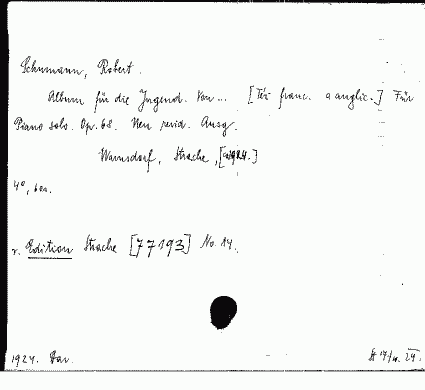 Schumann, Robert.
Album für die Jugend. Von ... [Tit. franc. a anglic.] Für
Piano solo. Op. 68. Neu revid. Ausg.
Warnsdorf, Strache, [1924.]
4°,
v. Edition Strache [77193] No. 14.
1924. Dar.